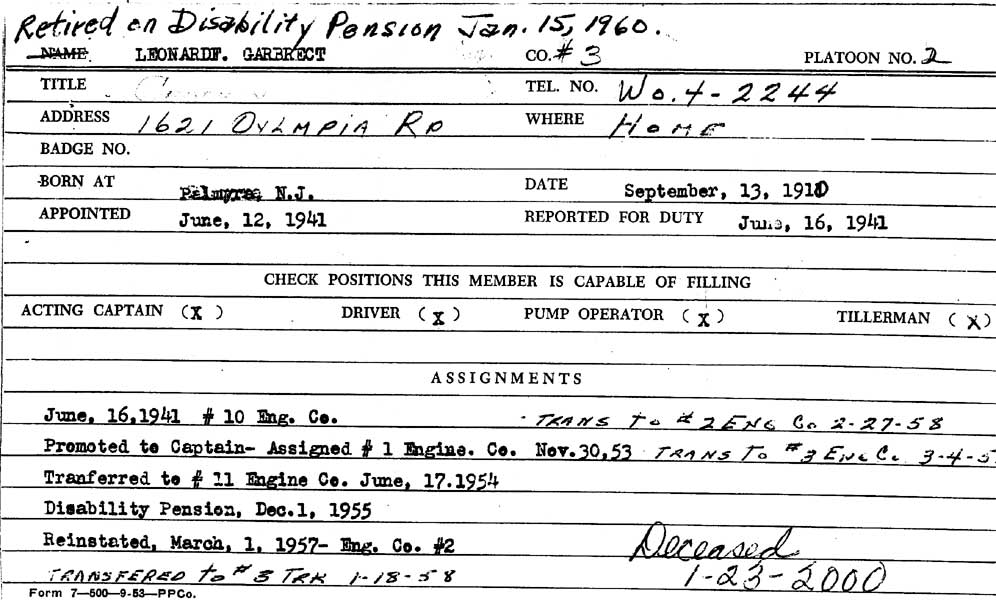 Retired on Disability Pension Jan. 15, 1960.
NAME LEONARDF. GARBRECT CO. #3 PLATOON NO. 2
TITLE TEL. NO. Wo. 4-2244
ADDRESS 1621 OYLMPIA RD WHERE HOME
BADGE NO.
BORN AT Palmyra, N.J. DATE September, 13, 1910
APPOINTED June, 12, 1941 REPORTED FOR DUTY June, 16, 1941
CHECK POSITIONS THIS MEMBER IS CAPABLE OF FILLING
ACTING CAPTAIN (X) DRIVER (X) PUMP OPERATOR (X) TILLERMAN (X)
ASSIGNMENTS
June, 16,1941 # 10 Eng. Co. TRANS To #2 ENG Co 2-27-58
Promoted to Captain- Assigned # 1 Engine. Co. Nov.30,53 TRANS To #3 ENG Co. 3-4-5
Tranferred to # 11 Engine Co. June, 17.1954
Disability Pension, Dec.1, 1955
Reinstated, March, 1, 1957- Eng. Co. #2 Deceased
TRANSFERED to #3 TRK 1-18-58 1-23-2000
Form 7—500—9-53—PPCo.